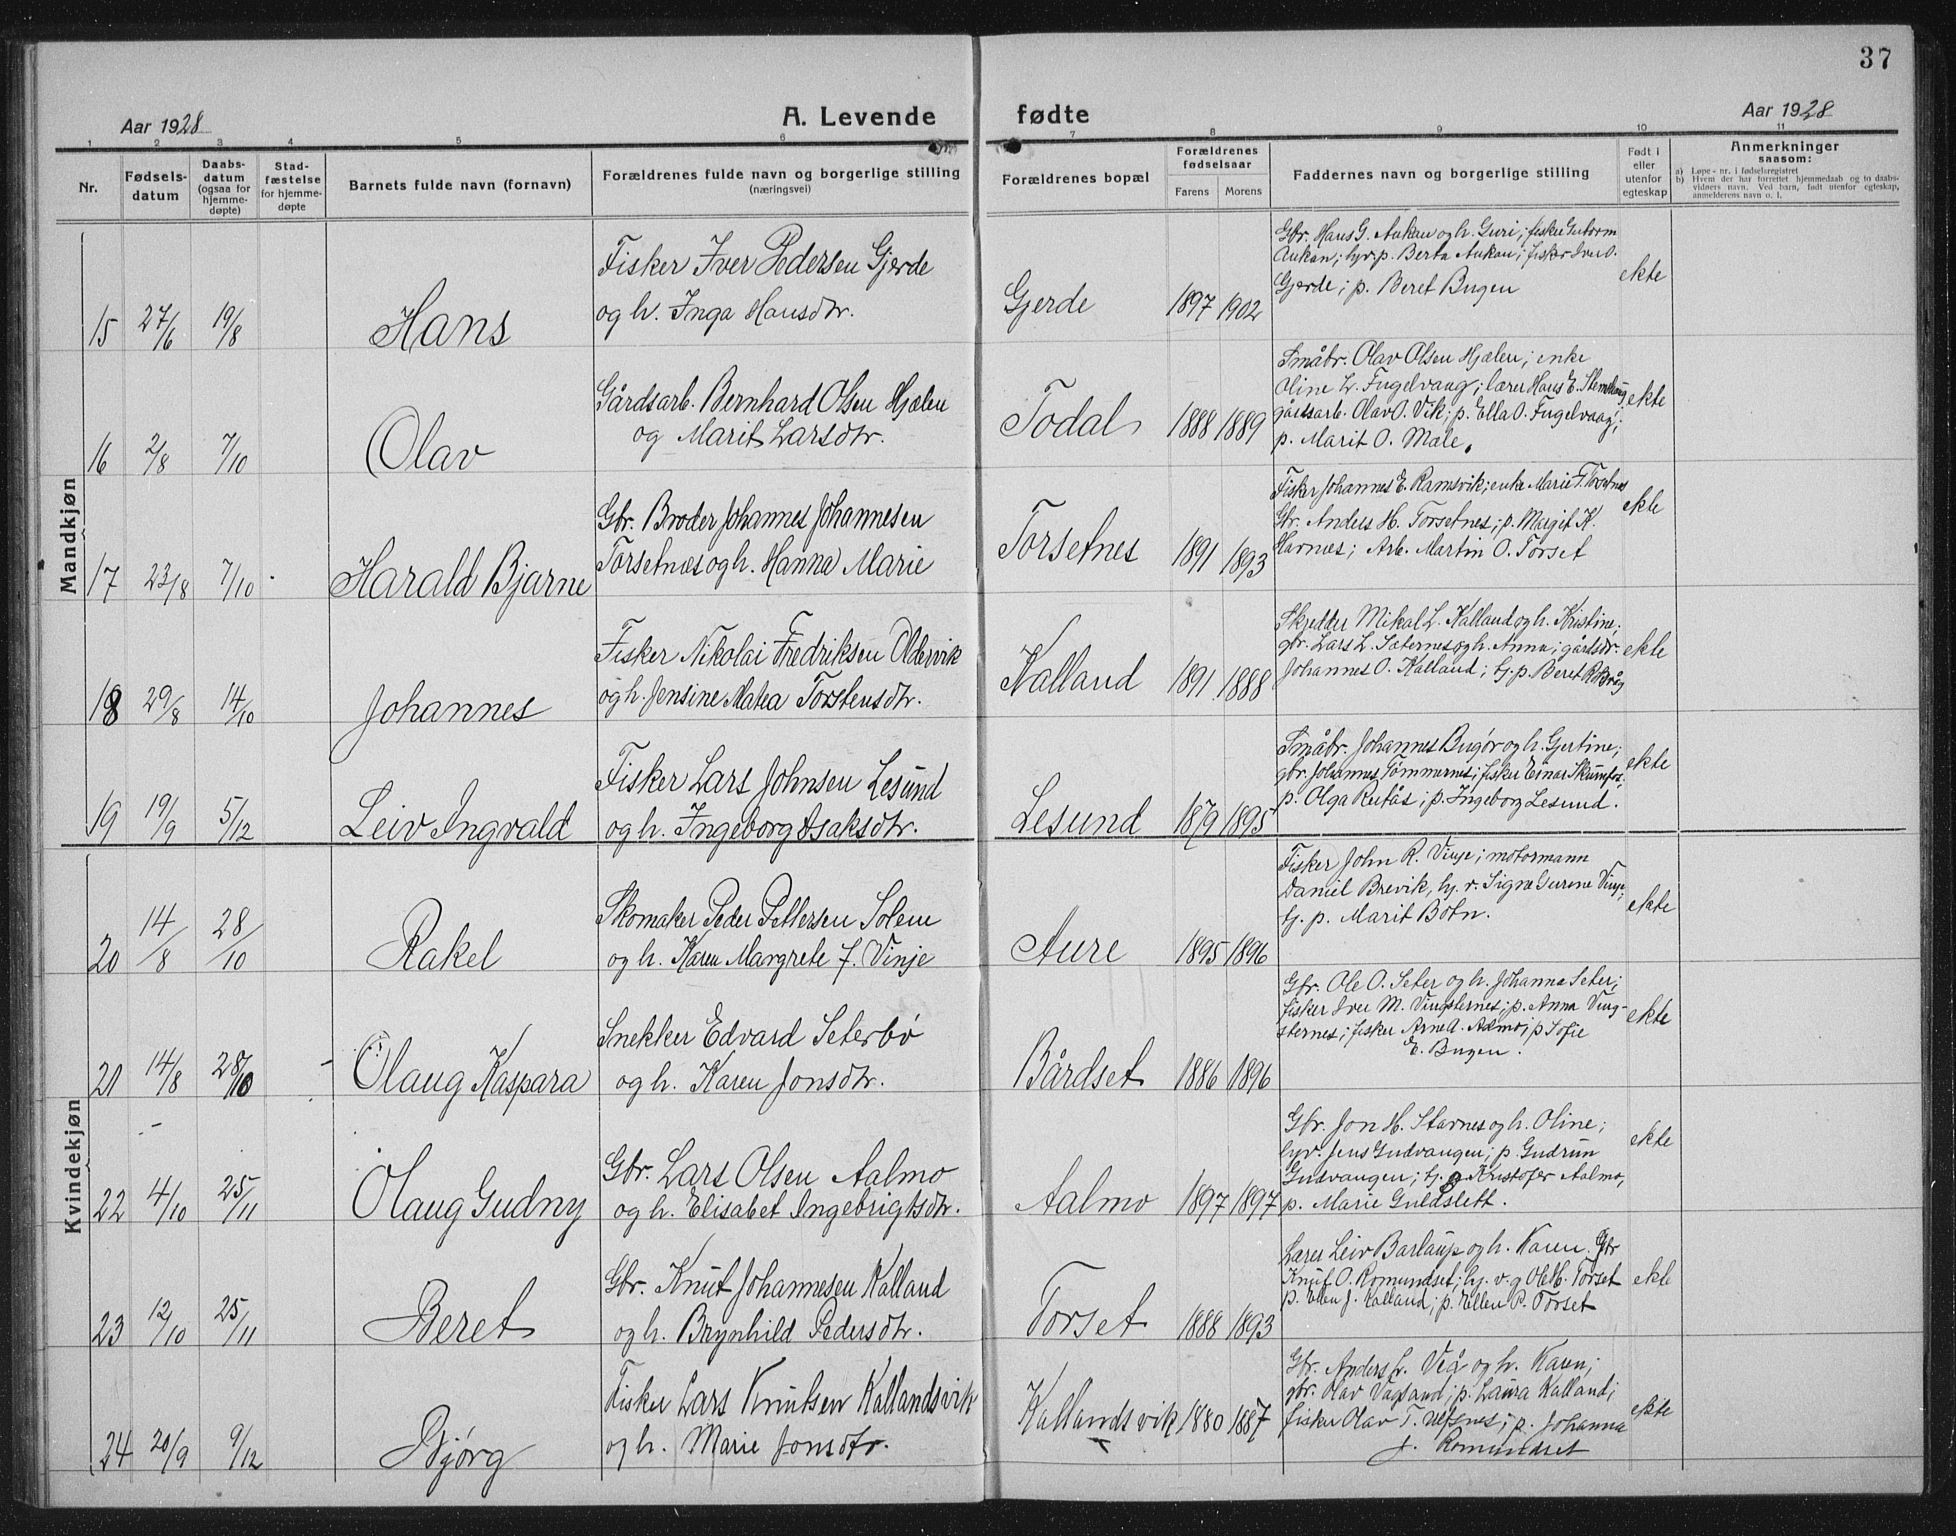 37
Aar 1928
A. Levende fødte
Aar 1928
1 2 3 4 5 6 7 8 9 10 11
Nr.
Fødsels-
datum
Daabs-
datum
(ogsaa for
hjemme-
døpte)
Stad-
fæstelse
for hjemme-
døpte
Barnets fulde navn (fornavn)
Forældrenes fulde navn og borgerlige stilling
(næringsvei)
Forældrenes bopæl
Forældrenes
fødselsaar
Farens Morens
Faddernes navn og borgerlige stilling
Født i
eller
utenfor
egteskap
Anmerkninger
saasom:
a) Løpe-nr. i fødselsregistret
b) Hvem der har forrettet hjemmedaab og to daabs-
vidners navn. Ved barn, født utenfor egteskap,
anmelderens navn o. l.
Mandkjøn
15 27/6 19/8 Hans
Fisker Iver Pedersen Gjerde
og h. Inga Hansdtr.
Gjerde 1897 1902
Gbr. Hans G. Aukan og h. Guri; fisker Guttorm
Aukan; hyr. p. Berta Aukan; fisker Iver O.
Gjerde; p. Beret Bugen
ekte
16 2/8 7/10 Olav
Gårdsarb. Bernhard Olsen Hjælen
og Marit Larsdtr.
Todal 1888 1889
Småbr. Olav Olsen Hjælen; enke
Oline L. Fugelvaag; lærer Hans E.
gårdsarb. Olav O. Vik; p. Ella O. Fugelvaag;
p. Marit O. Mæle.
ekte
17 23/8 7/10 Harald Bjarne
Gbr. Broder Johannes Johannesen
Torsetnæs og h. Hanna Marie
Torsetnes 1891 1893
Fisker Johannes E. Ramsvik; enke Marie F. Torsetnes
Gbr. Anders H. Torsetnes; p. Margit K.
Harnæs; Arb. Martin O. Torset
ekte
18 29/8 14/10 Johannes
Fisker Nikolai Fredriksen Oldervik
og h. Jensine Matea Torstensdtr.
Kalland 1891 1888
Skredder Mikal L. Kalland og h. Kristine;
gbr. Lars L. Sæternes og h. Anna; gårdbr.
Johannes O. Kalland; hj. p. Beret R.
ekte
19 19/9 5/12 Leiv Ingvald
Fisker Lars Johnsen Lesund
og h. Ingeborg Isaksdtr.
Lesund 1879 1895
Småbr. Johannes Bugør og h. Gjertine;
gbr. Johannes Tømmernes; fisker Einar Skumfos;
p. Olga Reitås; p. Ingeborg Lesund.
ekte
Kvindekjøn
20 14/8 28/10 Rakel
Skomaker Peder Pettersen Solem
og h. Karen Margrete f. Vinje
Aure 1895 1896
Fisker John R. Vinje; motormann
Daniel Brevik, hj. v. Signe Gurene Vinje;
hj. p. Marit Botn.
ekte
21 14/8 28/10 Olaug Kaspara
Snekker Edvard Seterbø
og h. Karen Jonsdtr.
Bårdset 1886 1896
Gbr. Ole O. Seter og h. Johanna Seter;
fisker Iver M. Vingsternes; p. Anna Ving-
sternes; fisker Arne A. Aalmo; p Sofie
E. Bugen.
ekte
22 4/10 25/11 Olaug Gudny
Gbr. Lars Olsen Aalmo
og h. Elisabet Ingebrigtsdtr.
Aalmo 1897 1897
Gbr. Jon H. Stavnes og h. Oline;
hyv. Jens Gudvangen; p. Gudrun
Gudvangen; hj. p Kristofer Aalmo,
p. Marie Guldslett.
ekte
23 12/10 25/11 Beret
Gbr. Knut Johannesen Kalland
og h. Brynhild Pedersdtr.
Torset 1888 1893
Lærer Leiv Barlaup og h. Karen. Gbr
Knut O. Romundset; hj. v. g Ole H. Torset
p. Ellen J. Kalland; p. Ellen P. Torset
ekte
24 20/9 9/12 Bjørg
Fisker Lars Knutsen Kallandsvik
og h. Marie Jonsdtr.
Kallandsvik 1880 1887
Gbr. Anders L. Veg og h. Karen;
gbr. Olav Vågsand; p. Laura Kalland;
fisker Olav T. Ulfsnes; p. Johanna
J. Romundset
ekte